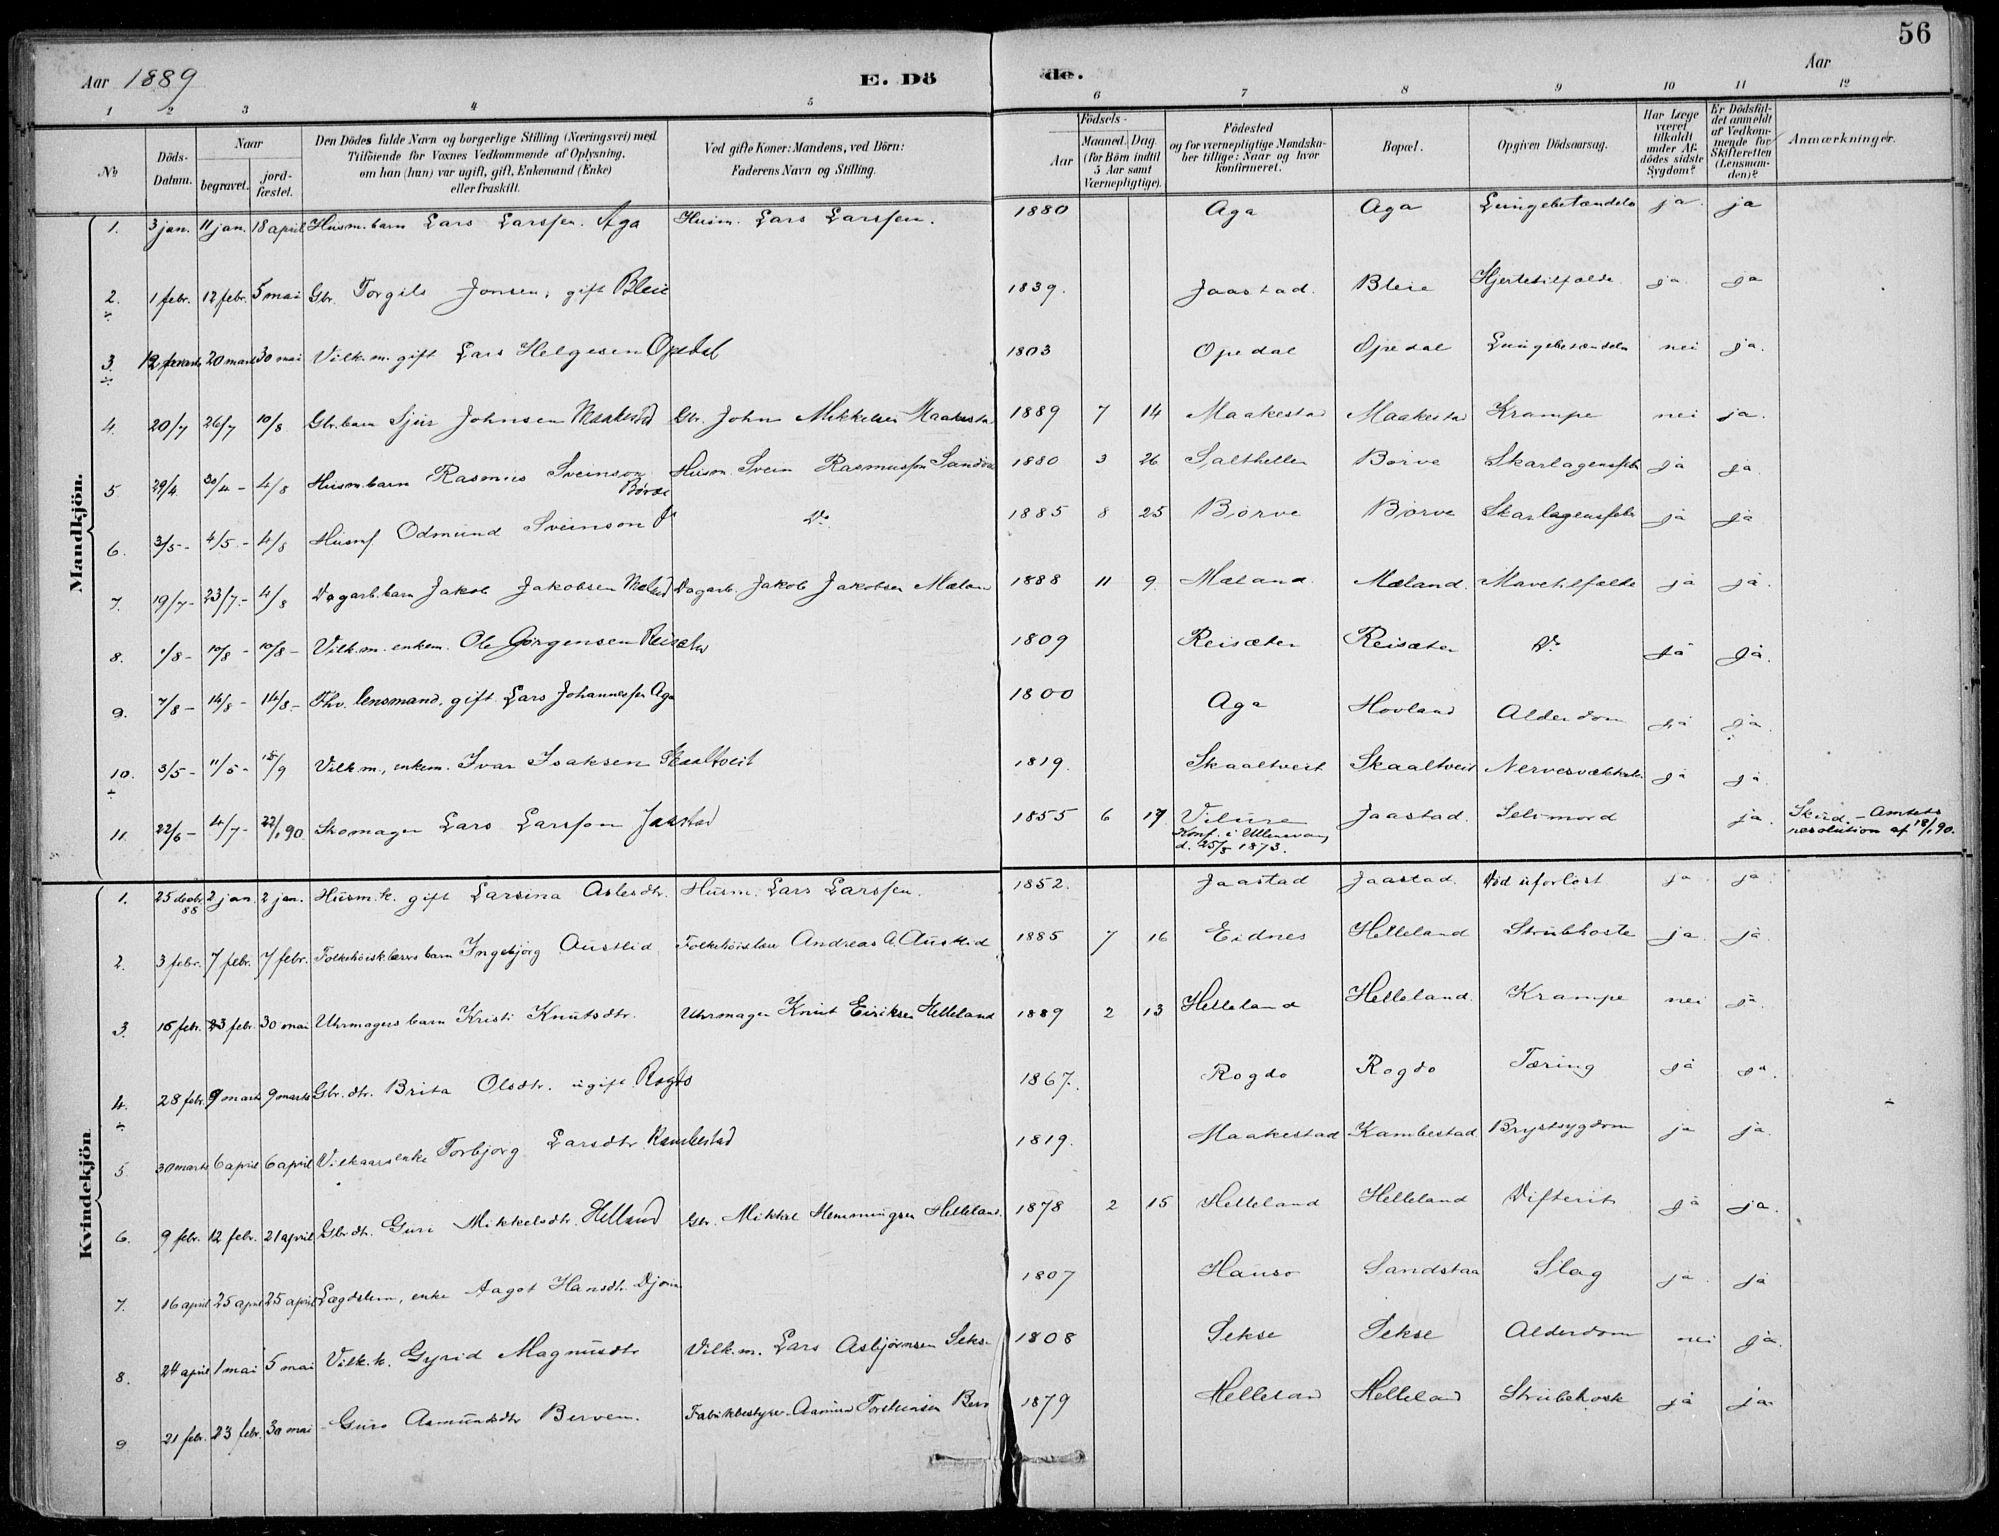 56
Aar 1889
E. Dö
de.
Aar
1 2 3 4 5 6 7 8 9 10 11 12
No
Döds-Datum.
Naar begravet. jordfæstet.
Den Dödes fulde Navn og borgerlige Stilling (Næringsvei) med Tilföiende for Voxnes Vedkommende af Oplysning, om han (hun) var ugift, gift, Enkemand (Enke) eller fraskilt.
Ved gifte Koner: Mandens, ved Börn: Faderens Navn og Stilling.
Födsels- Aar Maaned. Dag. (for Börn indtil 5 Aar samt Værnepligtige).
Födested og for værnepligtige Mandskaber tillige: Naar og hvor konfirmeret.
Bopæl.
Opgiven Dödsaarsag.
Har Læge været tilkaldt under Afdödes sidste Sygdom?
Er Dödsfaldet anmeldt af Vedkommende for Skifteretten (Lensmanden)?
Anmærkninger.
Mandkjön.
1. 3 jan. 11 jan. 18 april Husm. barn Lars Larssen. Aga Husm. Lars Larssen. 1880 Aga Aga Lungebetændels ja. ja
2. ÷ 1 febr. 12 febr. 5 mai Gbr. Torgils Jonsen, gift Bleie 1839. Jaastad. Bleie Hjertetilfælde ja. ja
3. ÷ 12 marts 20 marts 30 mai Vilk.m. gift Lars Helgesen Opedal 1803 Opedal Opedal Lungebetændels nei ja.
4. 20/7 26/7 10/8 Gbr. barn Sjur Johnsen Maakestad Gbr. John Mikkelsen Maakesta 1889 7 14 Maakestad Maakestad Krampe nei ja.
5 29/4. 30/4 - 4/8 Husm. barn Rasmus Sveinson Börve Husm. Svein Rasmussen 1880 3 26 Salthelle Börve Skarlagensfebr ja ja.
6. 3/5 - 4/5 - 4/8 Odmund Sveinson Do 1885 8 25 Börve Börve Skarlagensfebr ja ja
7. 19/7 - 23/7 - 4/8 Dagarb. barn Jakob Jakobsen Mæland Dagarb. Jakob Jakobsen Mælan 1888 11 9. Mæland Mæland. Mavetilfælde ja ja.
8. 1/8 - 10/8 - 10/8 - Vilk.m. enkem. Ole Görgensen Reisæter 1809 Reisæter Reisæter Do ja ja.
9. 7/8 - 14/8 - 14/8 - Fhv. lensmand, gift Lars Johannessen Aga 1800 Aga Hovland Alderdom ja ja.
10. ÷ 3/5 - 11/5 - 15/9 Vilk.m., enkem. Ivar Isaksen Skaaltveit 1819. Skaaltveit Skaaltveit ja ja.
11. 22/6 - 4/7 - 22/1 90. Skomager Lars Larsson Jaastad 1855 6 17 Vilure Konf. i Ullensvang d. 25/5 1873. Jaastad. Selvmord ja. Skiud. - Amtets resolution af 18/1 90.
Kvindekjön
1. 25 decbr. 88 2 jan. 2 jan. Husm.k. gift Larsina Aslesdtr. Husm. Lars Larssen. 1852. Jaastad Jaastad. Död uforlöst ja ja.
2. 3 febr. 7 febr. 7 febr. Folkehöiskl. barn Ingebjörg Austlid Andreas A. Austlid 1885 7 16 Eidnes Helleland Strubehoste ja. ja.
3 15 febr. 23 febr. 30 mai Uhrmagers barn Kristi Knutsdtr. Uhrmager Knut Eiriksen Helleland 1889 2 13 Helleland Helleland. Krampe nei ja.
4. ÷ 28 febr. 9 marts 9 marts Gbr.dtr. Brita Olsdtr. ugift. Rogdo 1867. Rogdo Rogdo Tæring ja ja.
5 30 marts 6 april 6 april Vilkaarsenke Torbjörg Larsdtr Kambestad 1819. Maakestad Kambestad Brystsygdom ja ja.
6. 9 febr. 12 febr. 21 april Gbr.dtr. Guri Mikkelsdtr. Helland Gbr. Mikkel Hemmingsen Helleland. 1878 2 15 Helleland Helleland Difterit ja ja.
7. 16 april 25 april 25 april Lægdslem, enke Aagot Hansdtr. 1807 Hauso Sandstaa Slag ja. ja
8. 24 april 1 mai 5 mai Vilk.k. Gyrid Magnusdtr Vilk.m. Lars Asbjörnsen Sekse 1808 Sekse Sekse Alderdom nei ja.
9 21 febr. 23 febr. 30 mai Guro Asmundsdtr Berven. Fabrikbestyrer Aamund Torsteinsen Berv 1879 Hellelan Helleland Strubehost ja ja.